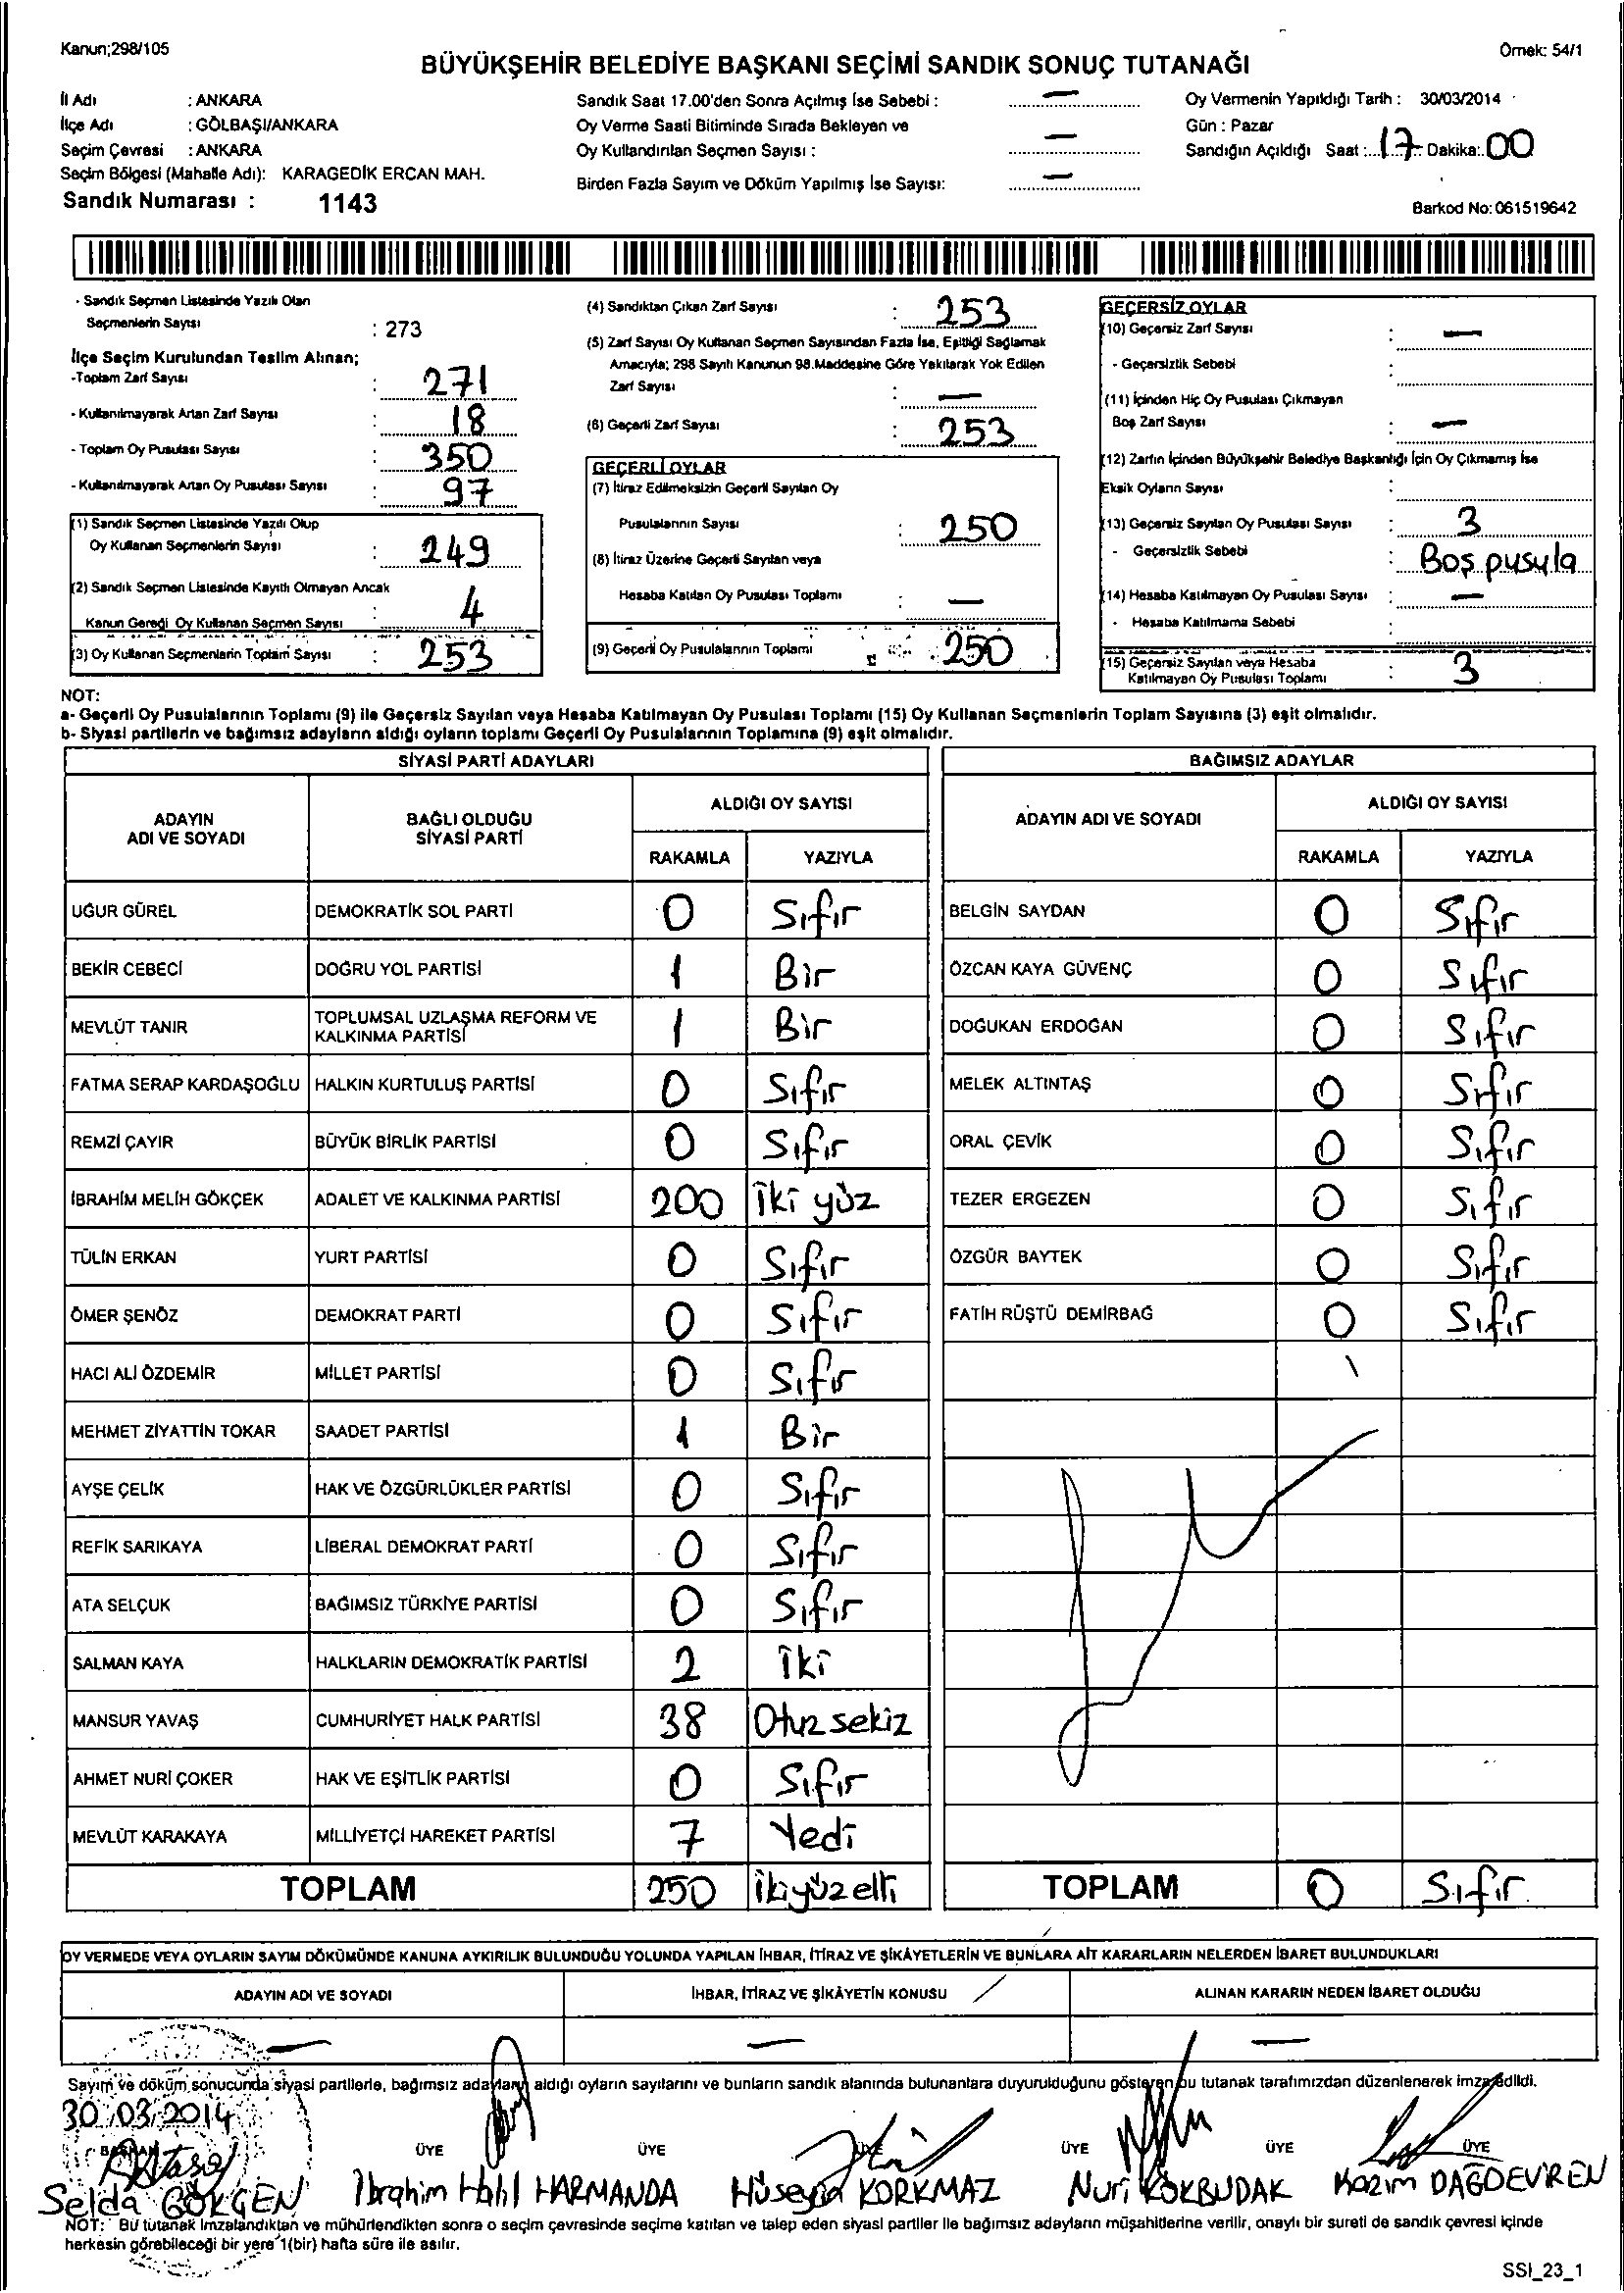 Kanun;298/105
Örnek: 54/1
BÜYÜKŞEHİR BELEDİYE BAŞKANI SEÇİMİ SANDIK SONUÇ TUTANAĞI
İl Adı : ANKARA
İlçe Adı : GÖLBAŞI/ANKARA
Seçim Çevresi : ANKARA
Seçim Bölgesi (Mahalle Adı): KARAGEDİK ERCAN MAH.
Sandık Numarası : 1143
Sandık Saat 17.00'den Sonra Açılmış İse Sebebi : —
Oy Verme Saati Bitiminde Sırada Bekleyen ve
Oy Kullandırılan Seçmen Sayısı : —
Birden Fazla Sayım ve Döküm Yapılmış İse Sayısı: —
Oy Vermenin Yapıldığı Tarih : 30/03/2014
Gün : Pazar
Sandığın Açıldığı Saat : 17 Dakika: 00
Barkod No: 061519642
- Sandık Seçmen Listesinde Yazılı Olan
Seçmenlerin Sayısı : 273
İlçe Seçim Kurulundan Teslim Alınan;
-Toplam Zarf Sayısı : 271
- Kullanılmayarak Artan Zarf Sayısı : 18
- Toplam Oy Pusulası Sayısı : 350
- Kullanılmayarak Artan Oy Pusulası Sayısı : 97
(1) Sandık Seçmen Listesinde Yazılı Olup
Oy Kullanan Seçmenlerin Sayısı : 249
(2) Sandık Seçmen Listesinde Kayıtlı Olmayan Ancak
Kanun Gereği Oy Kullanan Seçmen Sayısı : 4
(3) Oy Kullanan Seçmenlerin Toplam Sayısı : 253
(4) Sandıktan Çıkan Zarf Sayısı : 253
(5) Zarf Sayısı Oy Kullanan Seçmen Sayısından Fazla İse, Eşitliği Sağlamak
Amacıyla; 298 Sayılı Kanunun 98.Maddesine Göre Yakılarak Yok Edilen
Zarf Sayısı : —
(6) Geçerli Zarf Sayısı : 253
GEÇERLİ OYLAR
(7) İtiraz Edilmeksizin Geçerli Sayılan Oy
Pusulalarının Sayısı : 250
(8) İtiraz Üzerine Geçerli Sayılan veya
Hesaba Katılan Oy Pusulası Toplamı : —
(9) Geçerli Oy Pusulalarının Toplamı : 250
GEÇERSİZ OYLAR
(10) Geçersiz Zarf Sayısı : —
- Geçersizlik Sebebi :
(11) İçinden Hiç Oy Pusulası Çıkmayan
Boş Zarf Sayısı : —
(12) Zarfın İçinden Büyükşehir Belediye Başkanlığı İçin Oy Çıkmamış İse
Eksik Oyların Sayısı :
(13) Geçersiz Sayılan Oy Pusulası Sayısı : 3
- Geçersizlik Sebebi : Boş pusula
(14) Hesaba Katılmayan Oy Pusulası Sayısı : —
- Hesaba Katılmama Sebebi :
(15) Geçersiz Sayılan veya Hesaba
Katılmayan Oy Pusulası Toplamı : 3
NOT:
a- Geçerli Oy Pusulalarının Toplamı (9) ile Geçersiz Sayılan veya Hesaba Katılmayan Oy Pusulası Toplamı (15) Oy Kullanan Seçmenlerin Toplam Sayısına (3) eşit olmalıdır.
b- Siyasi partilerin ve bağımsız adayların aldığı oyların toplamı Geçerli Oy Pusulalarının Toplamına (9) eşit olmalıdır.
SİYASİ PARTİ ADAYLARI
ADAYIN ADI VE SOYADI BAĞLI OLDUĞU SİYASİ PARTİ ALDIĞI OY SAYISI
RAKAMLA YAZIYLA
UĞUR GÜREL DEMOKRATİK SOL PARTİ 0 Sıfır
BEKİR CEBECİ DOĞRU YOL PARTİSİ 1 Bir
MEVLÜT TANIR TOPLUMSAL UZLAŞMA REFORM VE KALKINMA PARTİSİ 1 Bir
FATMA SERAP KARDAŞOĞLU HALKIN KURTULUŞ PARTİSİ 0 Sıfır
REMZİ ÇAYIR BÜYÜK BİRLİK PARTİSİ 0 Sıfır
İBRAHİM MELİH GÖKÇEK ADALET VE KALKINMA PARTİSİ 200 İki yüz
TÜLİN ERKAN YURT PARTİSİ 0 Sıfır
ÖMER ŞENÖZ DEMOKRAT PARTİ 0 Sıfır
HACI ALİ ÖZDEMİR MİLLET PARTİSİ 0 Sıfır
MEHMET ZİYATTİN TOKAR SAADET PARTİSİ 1 Bir
AYŞE ÇELİK HAK VE ÖZGÜRLÜKLER PARTİSİ 0 Sıfır
REFİK SARIKAYA LİBERAL DEMOKRAT PARTİ 0 Sıfır
ATA SELÇUK BAĞIMSIZ TÜRKİYE PARTİSİ 0 Sıfır
SALMAN KAYA HALKLARIN DEMOKRATİK PARTİSİ 2 İki
MANSUR YAVAŞ CUMHURİYET HALK PARTİSİ 38 Otuz sekiz
AHMET NURİ ÇOKER HAK VE EŞİTLİK PARTİSİ 0 Sıfır
MEVLÜT KARAKAYA MİLLİYETÇİ HAREKET PARTİSİ 7 Yedi
TOPLAM 250 İkiyüzelli
BAĞIMSIZ ADAYLAR
ADAYIN ADI VE SOYADI ALDIĞI OY SAYISI
RAKAMLA YAZIYLA
BELGİN SAYDAN 0 Sıfır
ÖZCAN KAYA GÜVENÇ 0 Sıfır
DOĞUKAN ERDOĞAN 0 Sıfır
MELEK ALTINTAŞ 0 Sıfır
ORAL ÇEVİK 0 Sıfır
TEZER ERGEZEN 0 Sıfır
ÖZGÜR BAYTEK 0 Sıfır
FATİH RÜŞTÜ DEMİRBAĞ 0 Sıfır
TOPLAM 0 Sıfır
OY VERMEDE VEYA OYLARIN SAYIM DÖKÜMÜNDE KANUNA AYKIRILIK BULUNDUĞU YOLUNDA YAPILAN İHBAR, İTİRAZ VE ŞİKÂYETLERİN VE BUNLARA AİT KARARLARIN NELERDEN İBARET BULUNDUKLARI
ADAYIN ADI VE SOYADI İHBAR, İTİRAZ VE ŞİKÂYETİN KONUSU ALINAN KARARIN NEDEN İBARET OLDUĞU
— — —
Sayım ve döküm sonucunda siyasi partilerle, bağımsız adayların aldığı oyların sayılarını ve bunların sandık alanında bulunanlara duyurulduğunu gösteren bu tutanak tarafımızdan düzenlenerek imza edildi.
30.03.2014
BAŞKAN ÜYE ÜYE ÜYE ÜYE ÜYE ÜYE
Selda GÖKGEN İbrahim Halil HARMANDA Hüseyin KORKMAZ Nuri KÖKBUDAK Kazım DAĞDEVİREN
NOT: Bu tutanak imzalandıktan ve mühürlendikten sonra o seçim çevresinde seçime katılan ve talep eden siyasi partiler ile bağımsız adayların müşahitlerine verilir, onaylı bir sureti de sandık çevresi içinde
herkesin görebileceği bir yere 1(bir) hafta süre ile asılır.
SSI_23_1